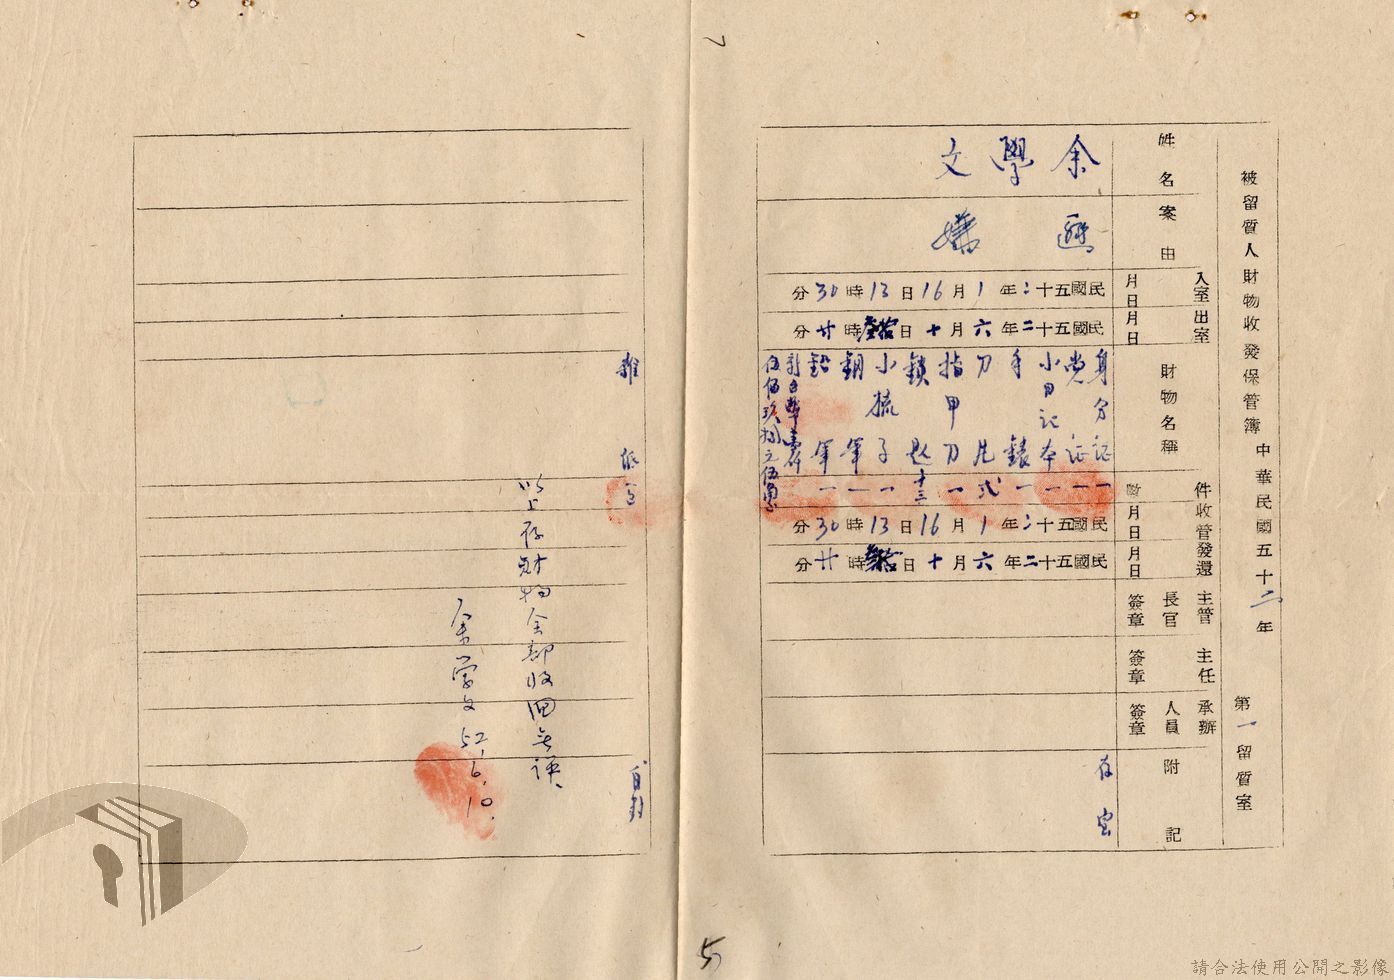 被留質人財物收發保管簿 中華民國五十二年 第一留質室
姓名
余學文
案由
嫌
入室 月日
民國五十二年1月16日13時30分
出室 月日
民國五十二年六月十日 時廿分
財物名稱
件數
身分証 一
党証 一
小日記本 一
手錶 一
刀片 弍
指甲刀 一
鎖匙 十三
小梳子 一
鋼筆 一
鉛筆 一
新台幣
伍佰玖拾元伍角
收管 月日
民國五十二年1月16日13時30分
發還 月日
民國五十二年六月十日 時廿分
主管長官簽章
主任簽章
承辦人員簽章
附記
存室
雜
以上存財物全部收回無誤、
余学文 52.6.10.
5
請合法使用公開之影像